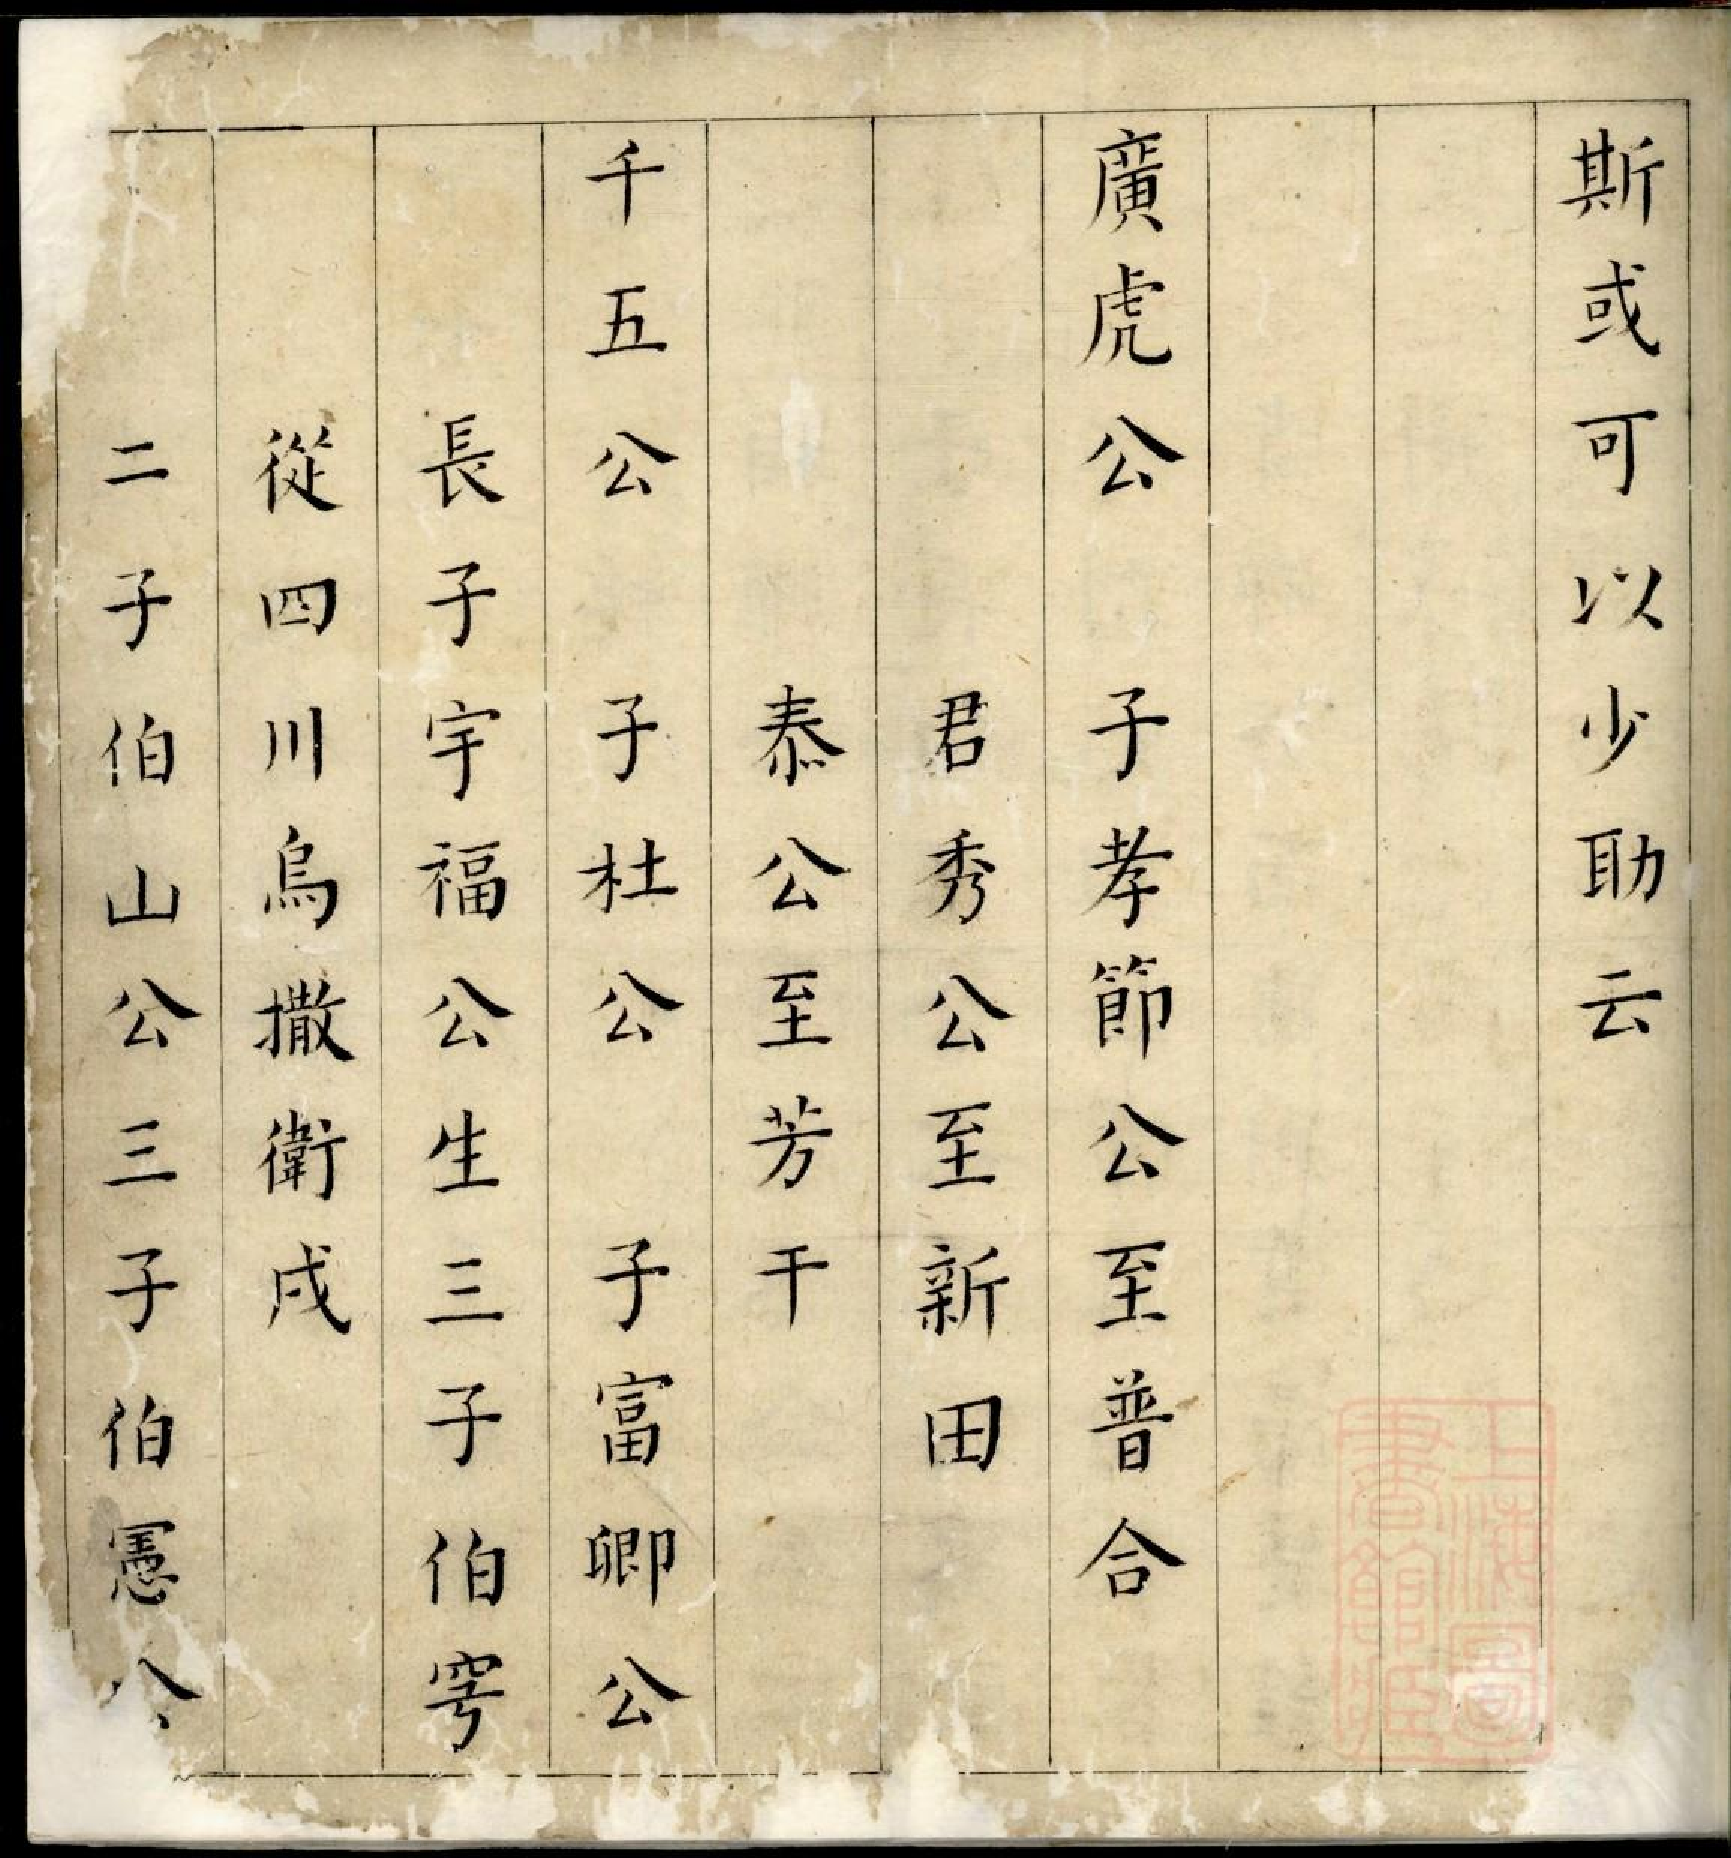 斯或可以少助云
廣虎公 子孝節公至普合
君秀公至新田
泰公至芳干
千五公 子杜公 子富卿公
長子宇福公生三子伯寄
從四川烏撒衛戍
二子伯山公三子伯憲公
上海圖
書館藏